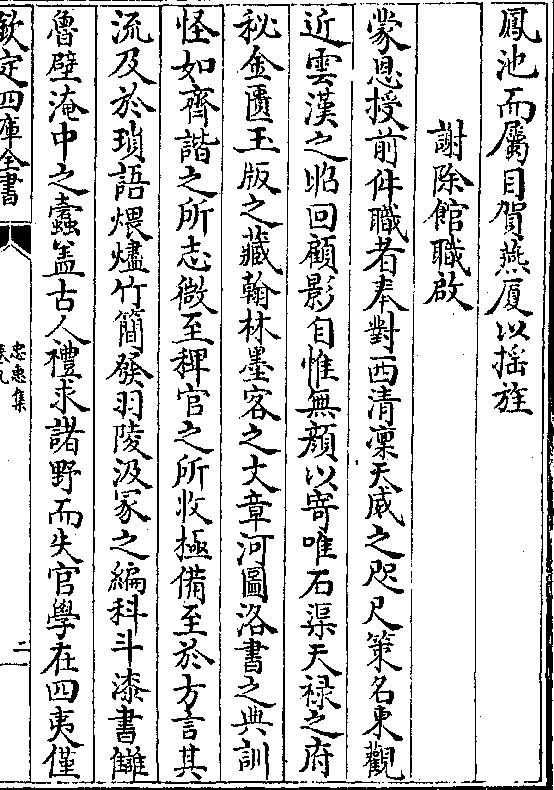 鳳池而屬目賀燕厦以揺旌
謝除館職啟
蒙恩授前件職者奉對西清凜天威之咫尺策名東觀
近雲漢之昭回顧影自惟無顔以寄唯石渠天禄之府
秘金匱玉版之藏翰林墨客之文章河圖洛書之典訓
怪如齊諧之所志微至稗官之所收極備至於方言其
流及於瑣語煨燼竹簡發羽陵汲冢之編科斗漆書讎
魯壁淹中之蠹盖古人禮求諸野而失官學在四夷僅
欽定四庫全書
忠惠集
卷九
二